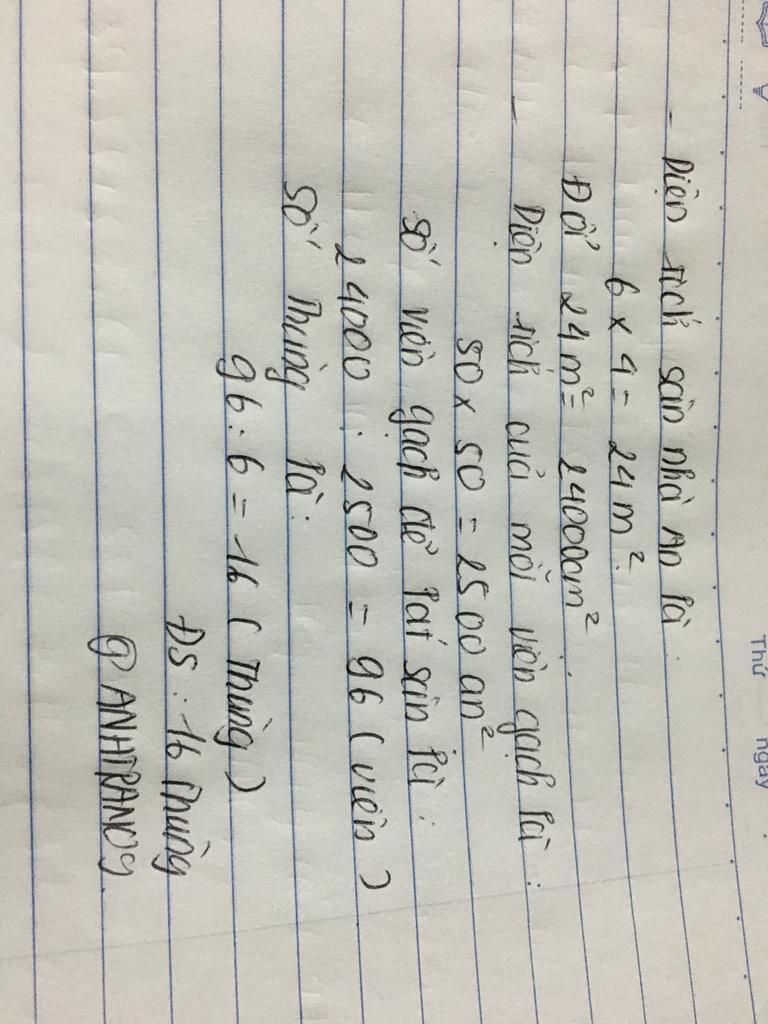 Thứ ngày
- Diện tích sàn nhà An là
6 x 4 = 24m².
Đổi 24m² = 24000cm²
- Diện tích của mỗi viên gạch là :
50 x 50 = 2500 cm²
Số viên gạch để lát sàn là :
24000 : 2500 = 96 (viên)
Số thùng là :
96 : 6 = 16 (Thùng)
ĐS : 16 thùng
@ ANHTRAN09